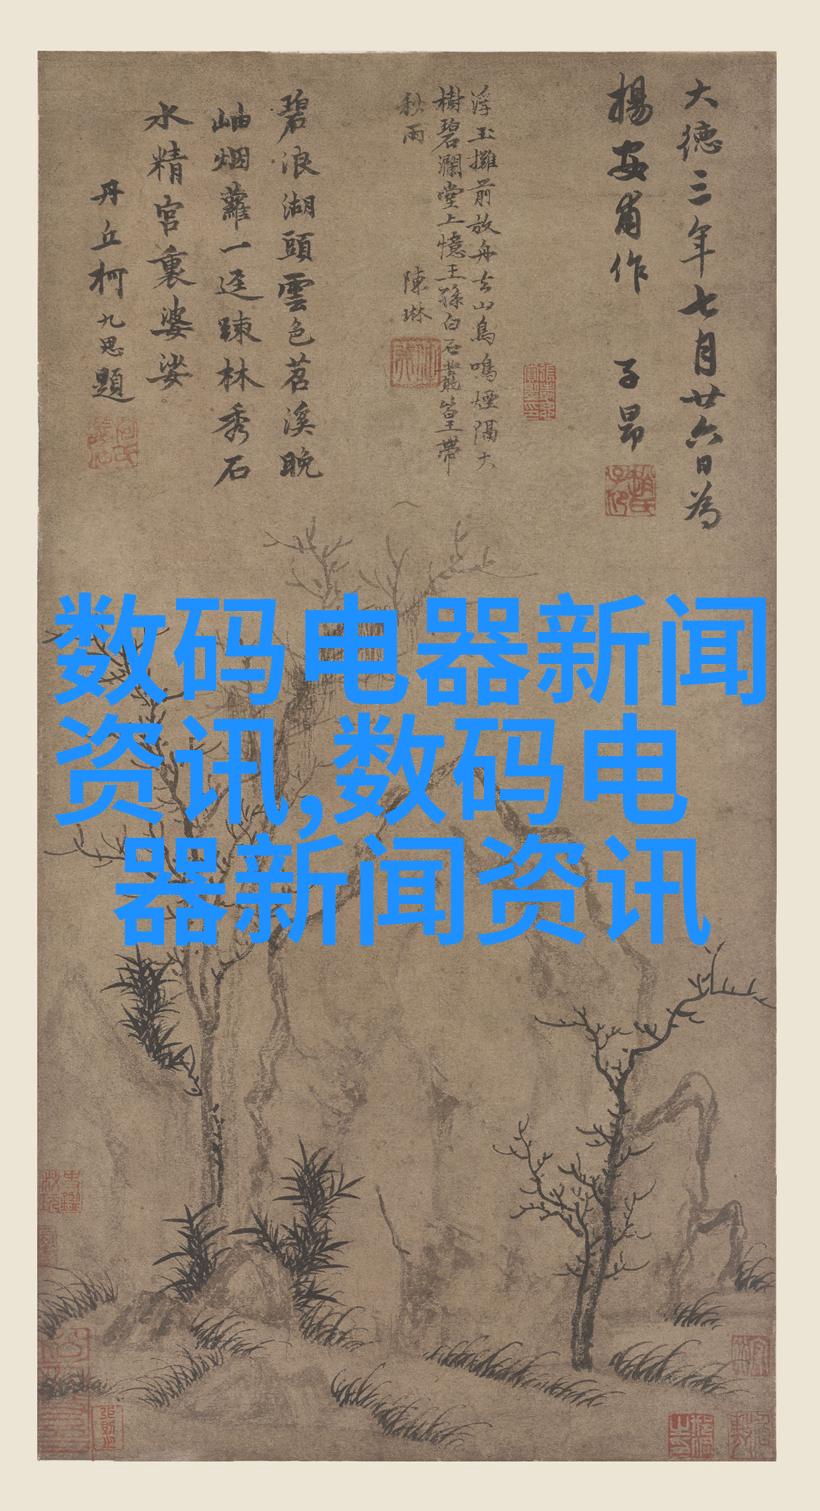 大德三年七月廿六日為
楊安甫作 子昂
浮玉攤前放舟去山鳥鳴煙隔大
樹碧瀾堂上憶王孫白石叢篁帶
秋雨 陳琳
碧浪湖頭雲色苕溪晚
岫烟蘿一逕踈林秀石
水精宮裏婆娑
丹丘柯九思題
数码电器新闻
资讯,数码电
器新闻资讯